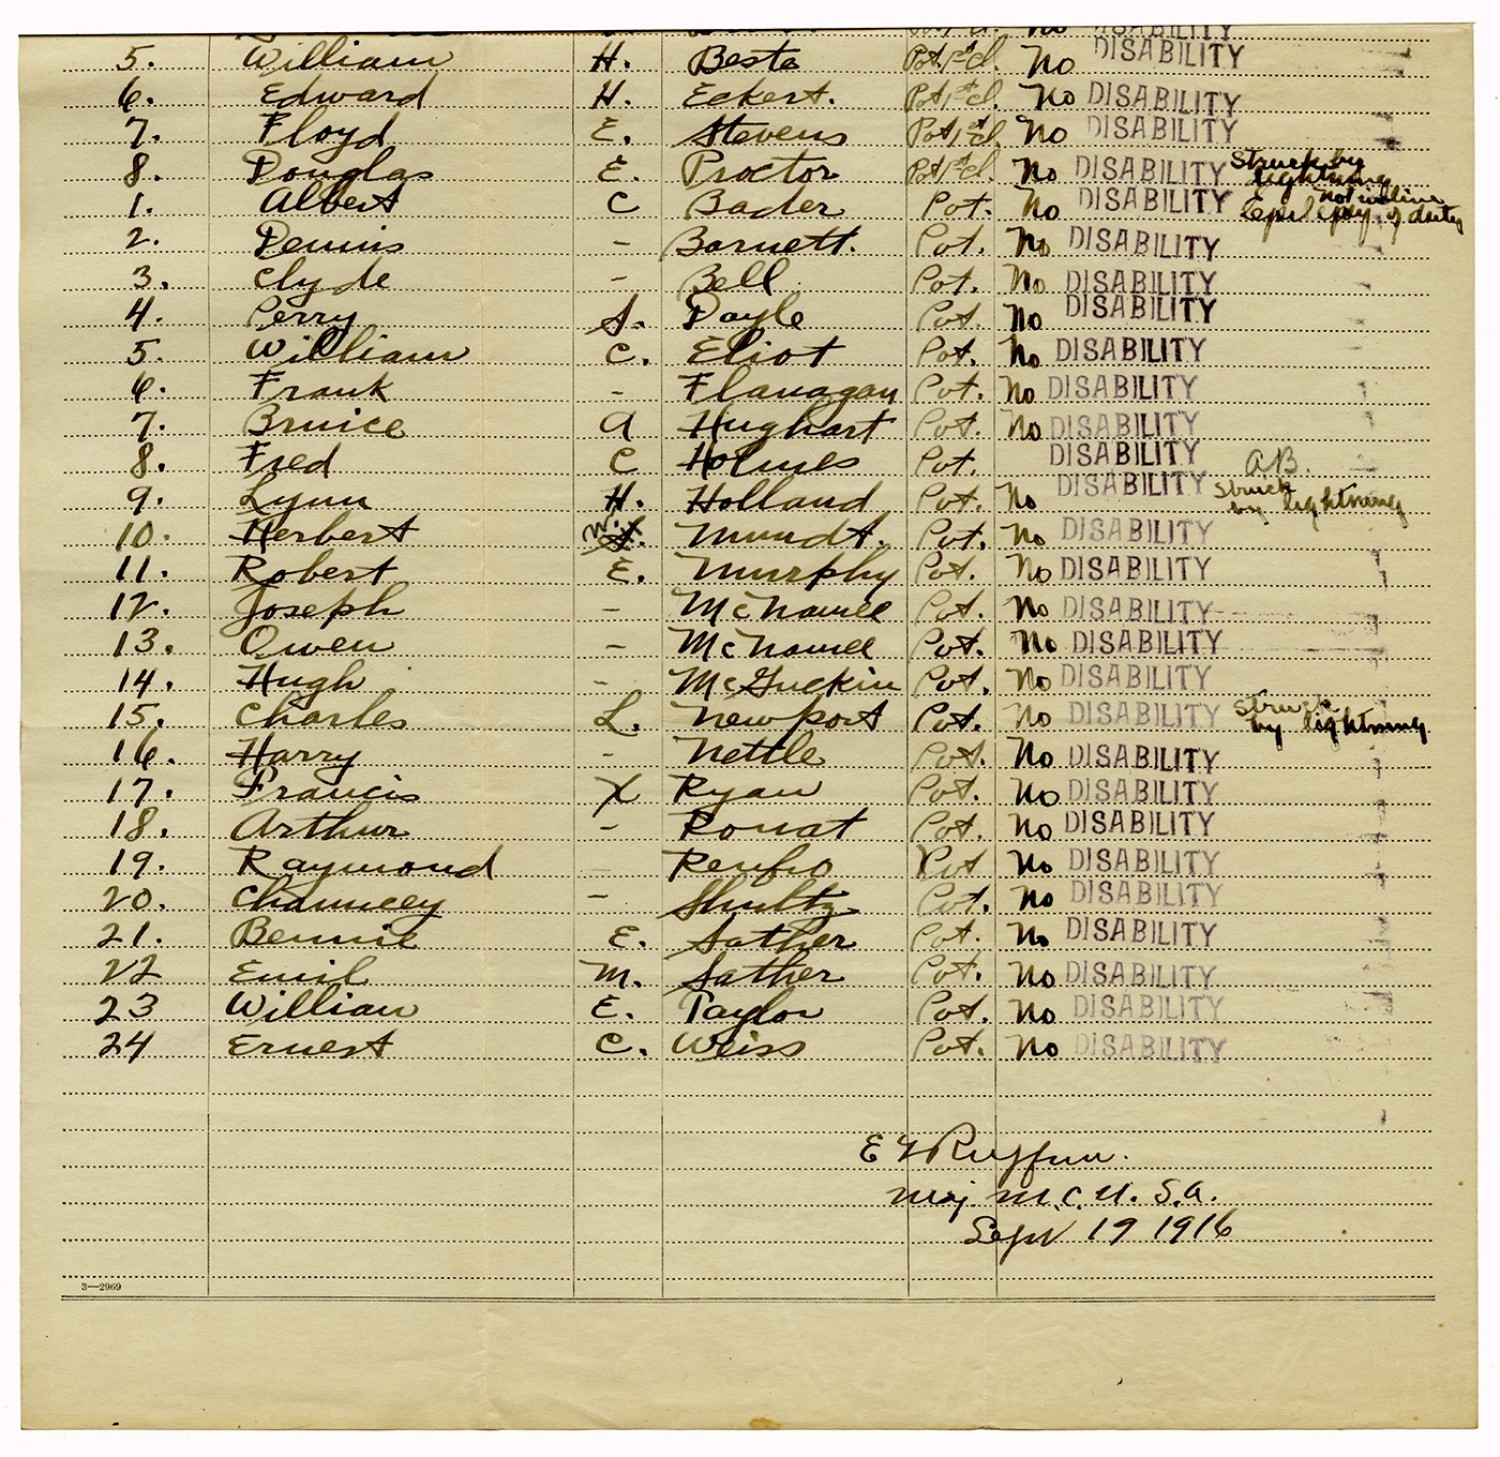 No DISABILITY
5. William H. Beste Pvt, 1st cl. No DISABILITY
6. Edward H. Eckert. Pvt, 1st cl. No DISABILITY
7. Floyd E. Stevens Pvt, 1st cl. No DISABILITY
8. Douglas E. Proctor Pvt, 1st cl. No DISABILITY Struck by lightning
1. Albert C Bader Pvt. No DISABILITY not in line of duty
2. Dennis - Barnett. Pvt. No DISABILITY
3. Clyde - Bell Pvt. No DISABILITY
4. Perry S. Doyle Pvt. No DISABILITY
5. William C. Eliot Pvt. No DISABILITY
6. Frank - Flanagan Pvt. No DISABILITY
7. Bruice A Hughart Pvt. No DISABILITY
8. Fred C Holmes Pvt. DISABILITY AB.
9. Lynn H. Holland Pvt. No DISABILITY Struck by lightning
10. Herbert W. Mundt. Pvt. No DISABILITY
11. Robert E. Murphy Pvt. No DISABILITY
12. Joseph - Pvt. No DISABILITY
13. Owen - Pvt. No DISABILITY
14. Hugh - McGuckin Pvt. No DISABILITY
15. Charles L. Newport Pvt. No DISABILITY Struck by lightning
16. Harry - Nettle Pvt. No DISABILITY
17. Francis X Ryan Pvt. No DISABILITY
18. Arthur - Rouat Pvt. No DISABILITY
19. Raymond Renfro Pvt No DISABILITY
20. Chauncey - Shultz Pvt. No DISABILITY
21. Bennie E. Sather Pvt. No DISABILITY
22 Emil M. Sather Pvt. No DISABILITY
23 William E. Taylor Pvt. No DISABILITY
24 Ernest C. Weiss Pvt. No DISABILITY
E L Ruffner.
Maj. M.C. U.S.A.
Sept 19 1916
3—2969